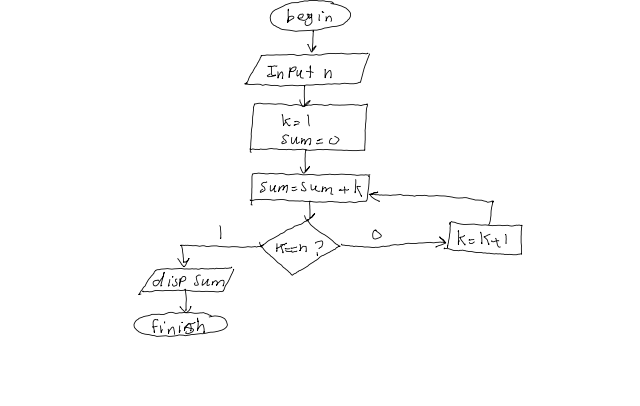 begin
Input n
k=1
sum=0
sum=sum+k
1
k==n?
0
k=k+1
disp sum
finish